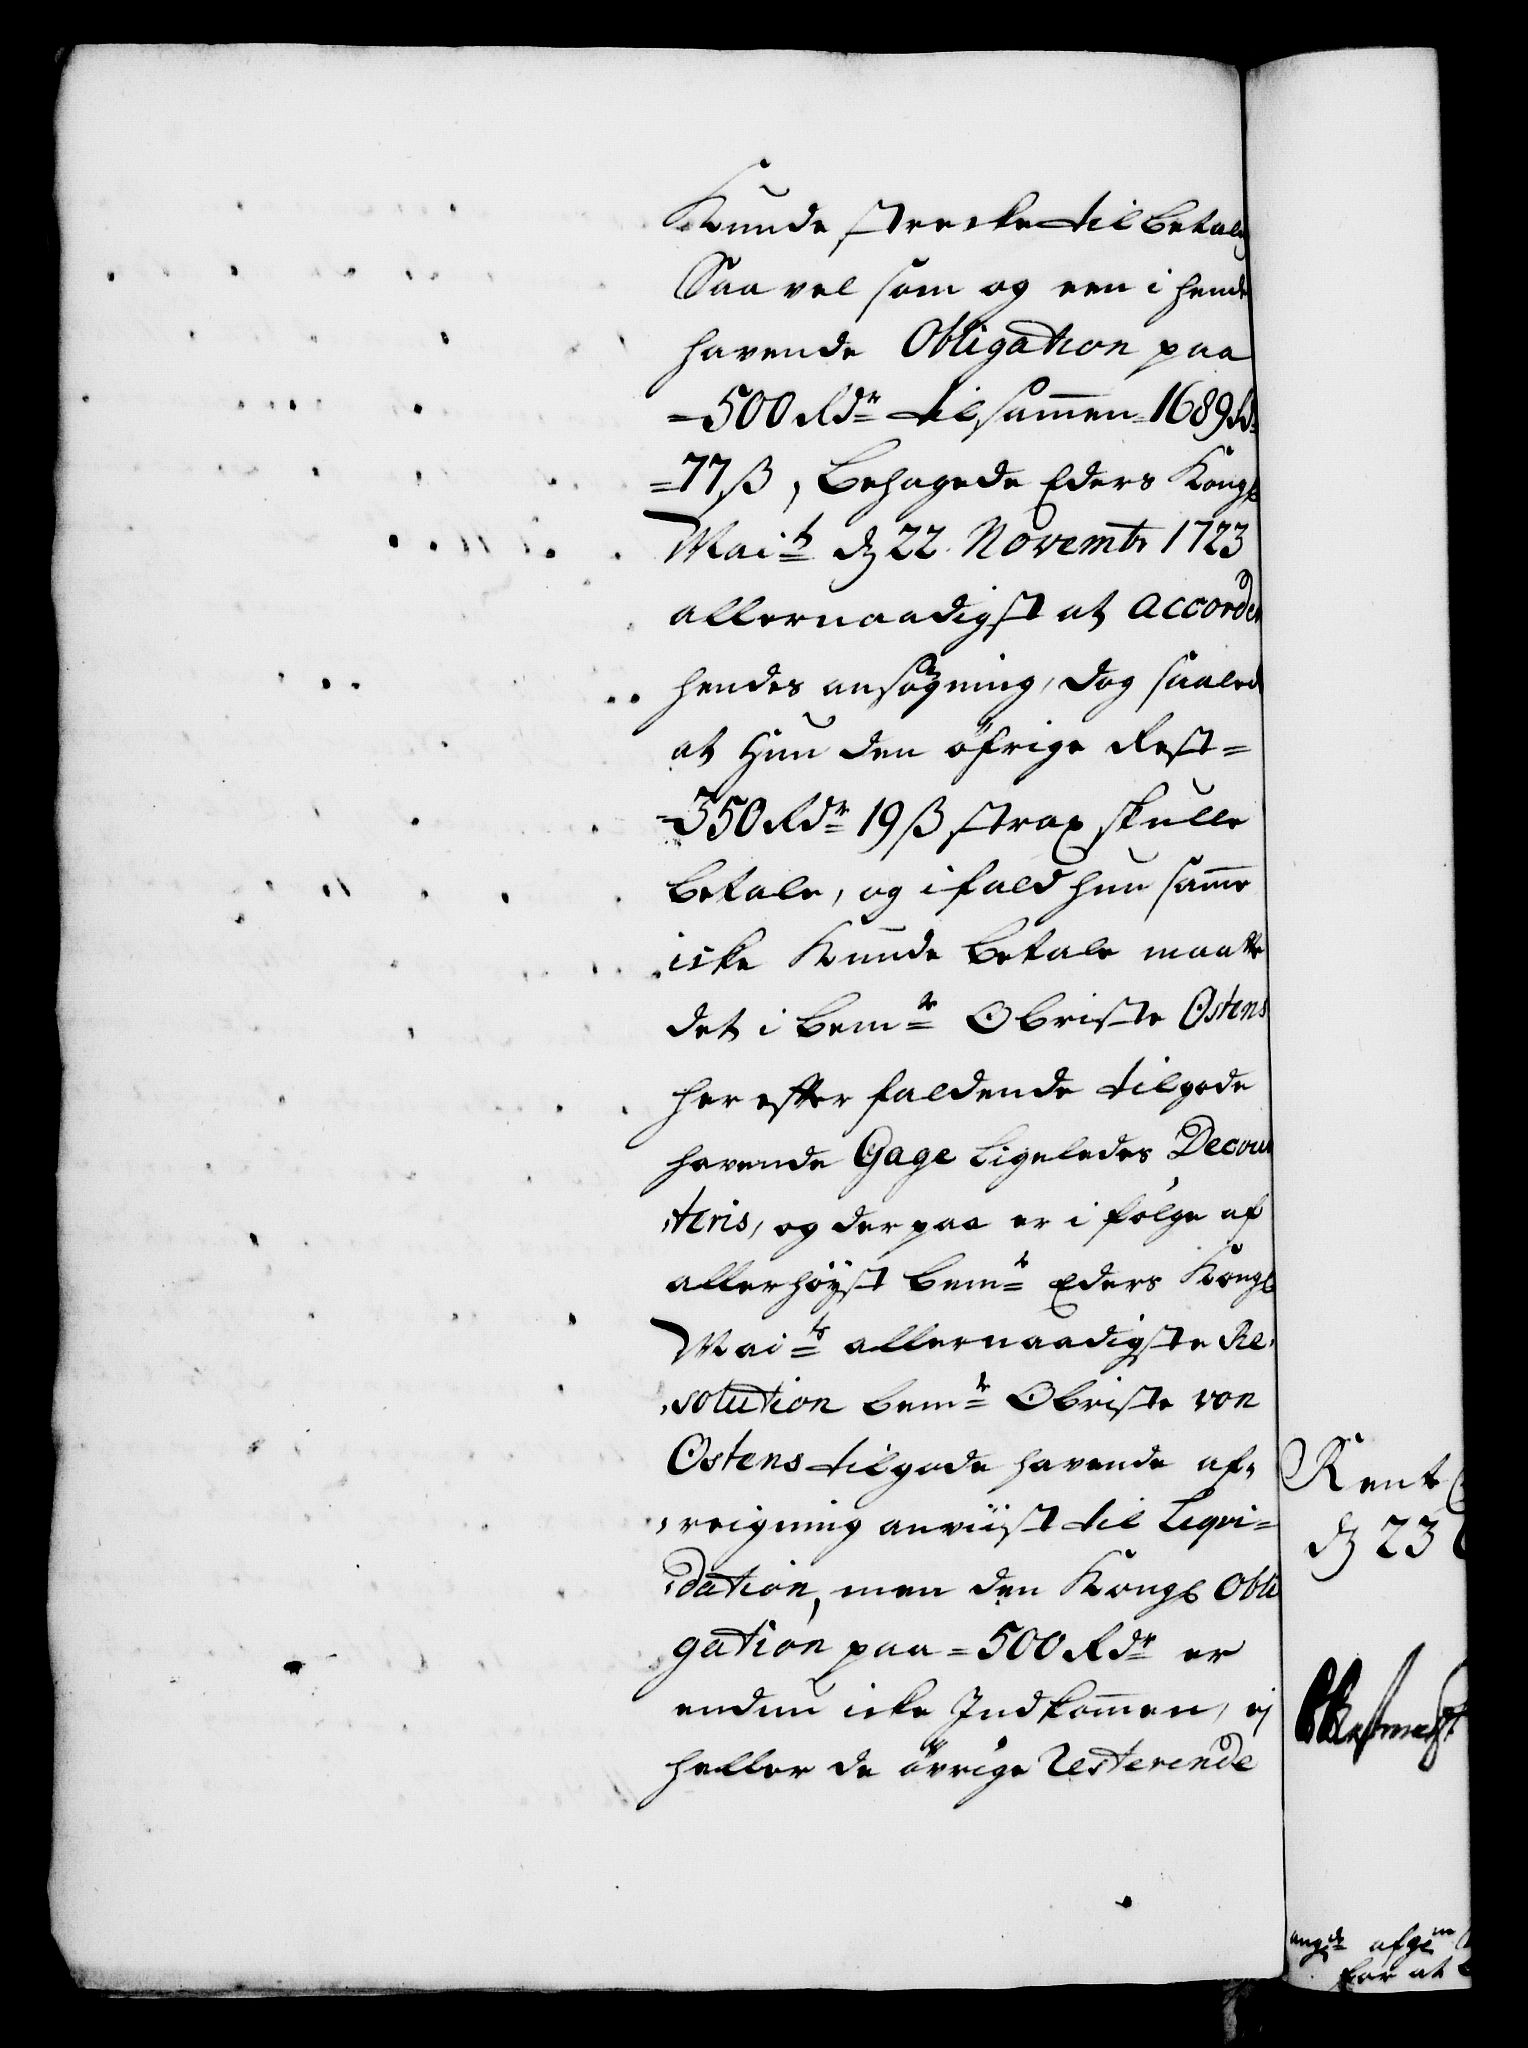 Kunde strecke til betalg
Saa vel som og een i hende
havende Obligation paa
=500 Rdr tilsammen=1689 Rd=
=77 ß, behagede Eders Kongl
Mait dẽ 22. Novembr 1723
allernaadigst at accorde
hendes ansøgning, dog saaled
at Hun den öfrige Rest=
=350 Rdr 19 ß strax skulle
betale, og i fald hun samme
icke Kunde betale maatte
det i bemte Obriste Ostens
her efter faldende tilgode
havende Gage ligeledes Decour
teris, og der paa er i følge af
allerhøyst bemte Eders Kongl
Maits allernaadigste Re,
,solution bemte Obriste von
Ostens tilgode havende af,
,reigning anviist til Liqvi=
,dation, men den Kongl Obli
gation paa=500 Rdr er
endnu icke Indkommen, ej
heller de övrige Resterende
Rent
dẽ 23
afge
for at